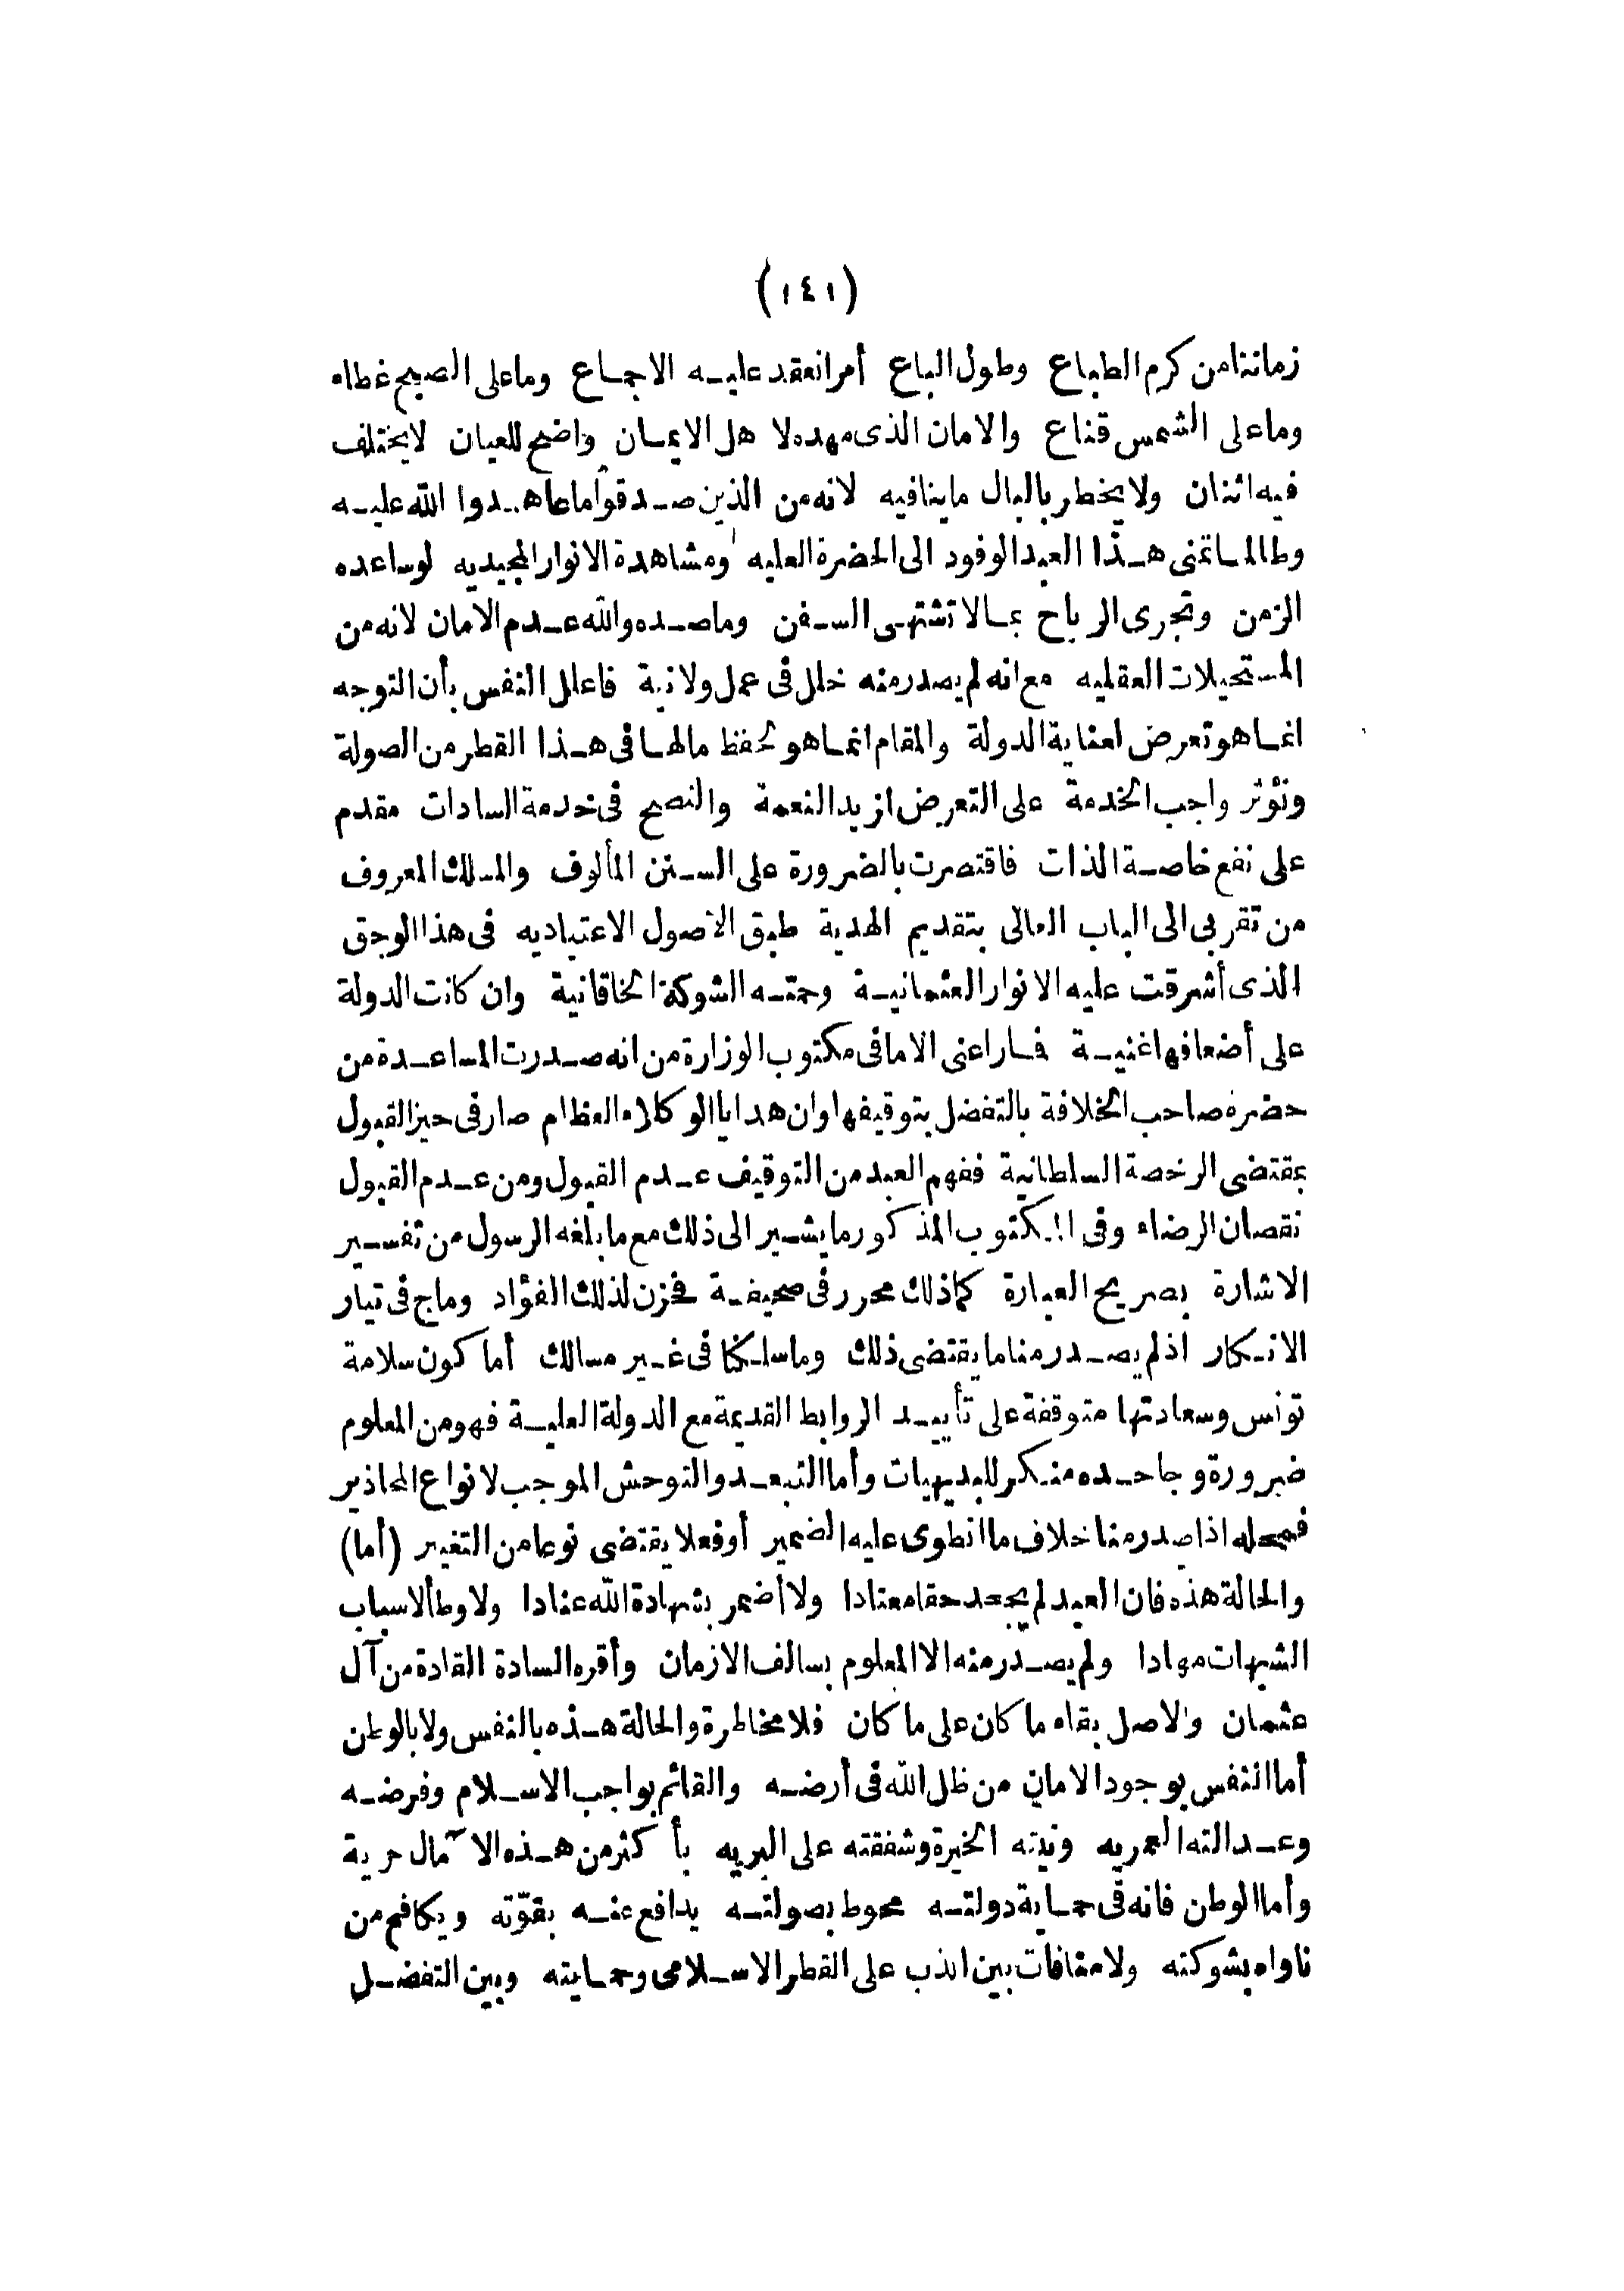 (١٤١)
زماننا من كرم الطباع وطول الباع أمر انعقد عليه الاجماع وما على الصبح غطاء
وما على الشمس قناع والامان الذى مهده لا هل الايمان واضح للعيان لا يختلف
فيه اثنان ولا يخطر بالبال ما ينافيه لانه من الذين صدقوا ما عاهدوا الله عليه
وطالما تمنى هذا العبد الوفود الى الحضرة العليه ومشاهدة الانوار المجيديه لو ساعده
الزمن وتجرى الرياح بما لا تشتهى السفن وما صده والله عدم الامان لانه من
المستحيلات العقليه مع انه لم يصدر منه خلل فى عمل ولا نية فاعلل النفس بأن التوجه
انما هو تعرض لعناية الدولة والمقام انما هو لحفظ ما لها فى هذا القطر من الصولة
ونؤثر واجب الخدمة على التعرض لزيد النعمة والنصح فى خدمة السادات مقدم
على نفع خاصة الذات فاقتصرت بالضرورة على السنن المألوف والمسلك المعروف
من تقربى الى الباب العالى بتقديم الهدية طبق الاصول الاعتياديه فى هذا الوجق
الذى أشرقت عليه الانوار العثمانية وحمته الشوكة الخاقانية وان كانت الدولة
على أضعافها غنية فما راعنى الا ما فى مكتوب الوزارة من انه صدرت المساعدة من
حضرة صاحب الخلافة بالتفضل بتوقيفها وان هدايا الوكلاء العظام صار فى حيز القبول
بمقتضى الرخصة السلطانية ففهم العبد من التوقيف عدم القبول ومن عدم القبول
نقصان الرضاء وفى المكتوب المذكور ما يشير الى ذلك مع ما بلغه الرسول من تفسير
الاشارة بصريح العبارة كما ذلك محرر فى صحيفة فحزن لذلك الفؤاد وماج فى تيار
الانكار اذ لم يصدر منا ما يقتضى ذلك وما سلكنا فى غير مسالك أما كون سلامة
تونس وسعادتها متوقفة على تأييد الروابط القديمة مع الدولة العلية فهو من المعلوم
ضرورة وجاحده منكر للبديهيات وأما التبعد والتوحش الموجب لانواع المحاذير
فمحله اذا صدر منا خلاف ما انطوى عليه الضمير أو فعلا يقتضى نوعا من التغيير (أما)
والحالة هذه فان العبد لم يجحد حقا معتادا ولا أضمر بشهادة الله عنادا ولا وطأ لاسباب
الشبهات مهادا ولم يصدر منه الا المعلوم بسالف الازمان وأقره السادة القادة من آل
عثمان والاصل بقاء ما كان على ما كان فلا مخاطرة والحالة هذه بالنفس ولا بالوطن
أما النفس بوجود الامان من ظل الله فى أرضه والقائم بواجب الاسلام وفرضه
وعدالته العمريه ونيته الخيرة وشفقته على البريه بأكثر من هذه الآمال حرية
وأما الوطن فانه فى حماية دولته محوط بصولته يدافع عنه بقوّته ويكافح من
ناواه بشوكته ولا منافات بين الذب على القطر الاسلامى وحمايته وبين التفضل